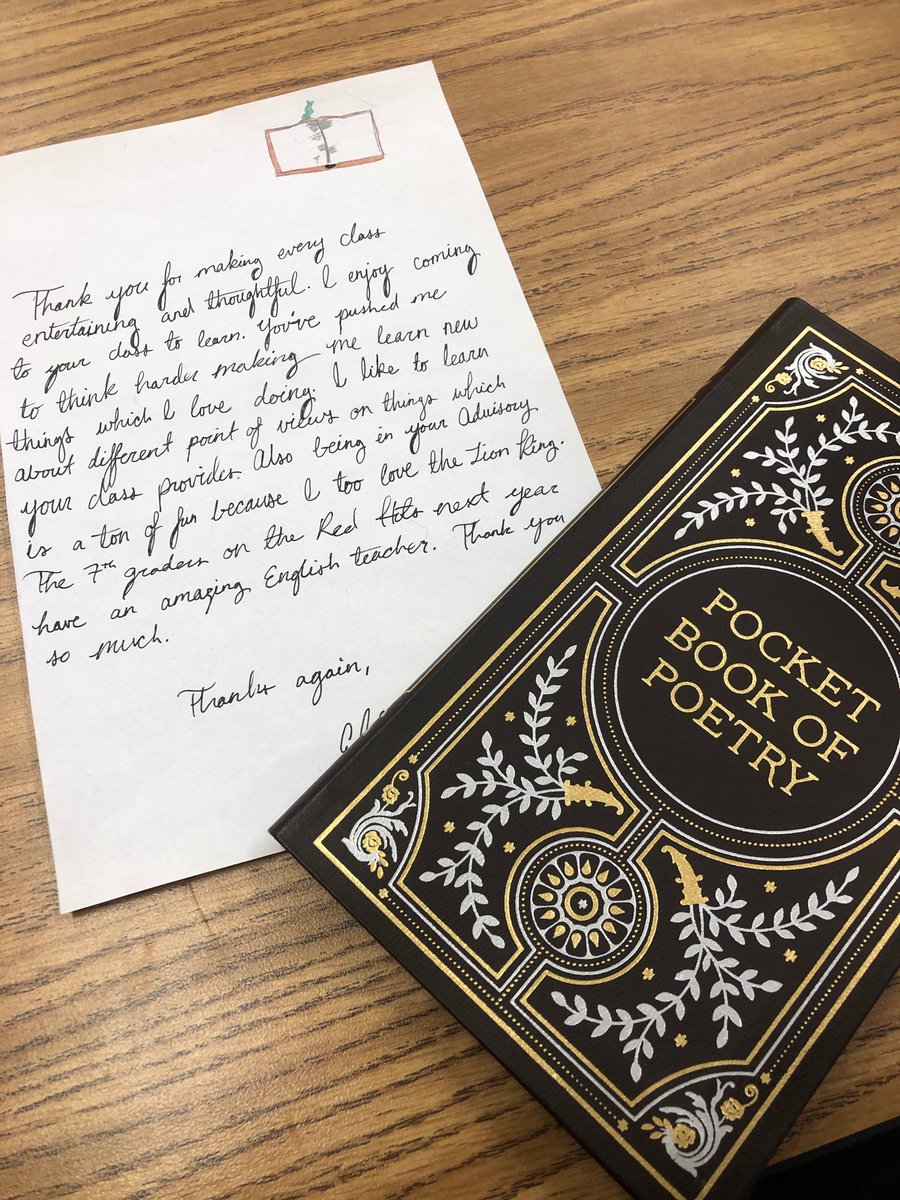 Thank you for making every class
entertaining and thoughtful. I enjoy coming
to your class to learn. You've pushed me
to think harder making me learn new
things which I love doing. I like to learn
about different point of views on things which
your class provides. Also being in your Advisory
is a ton of fun because I too love the Lion King.
The 7th graders on the Red next year
have an amazing English teacher. Thank you
so much.
Thanks again,
POCKET
BOOK OF
POETRY